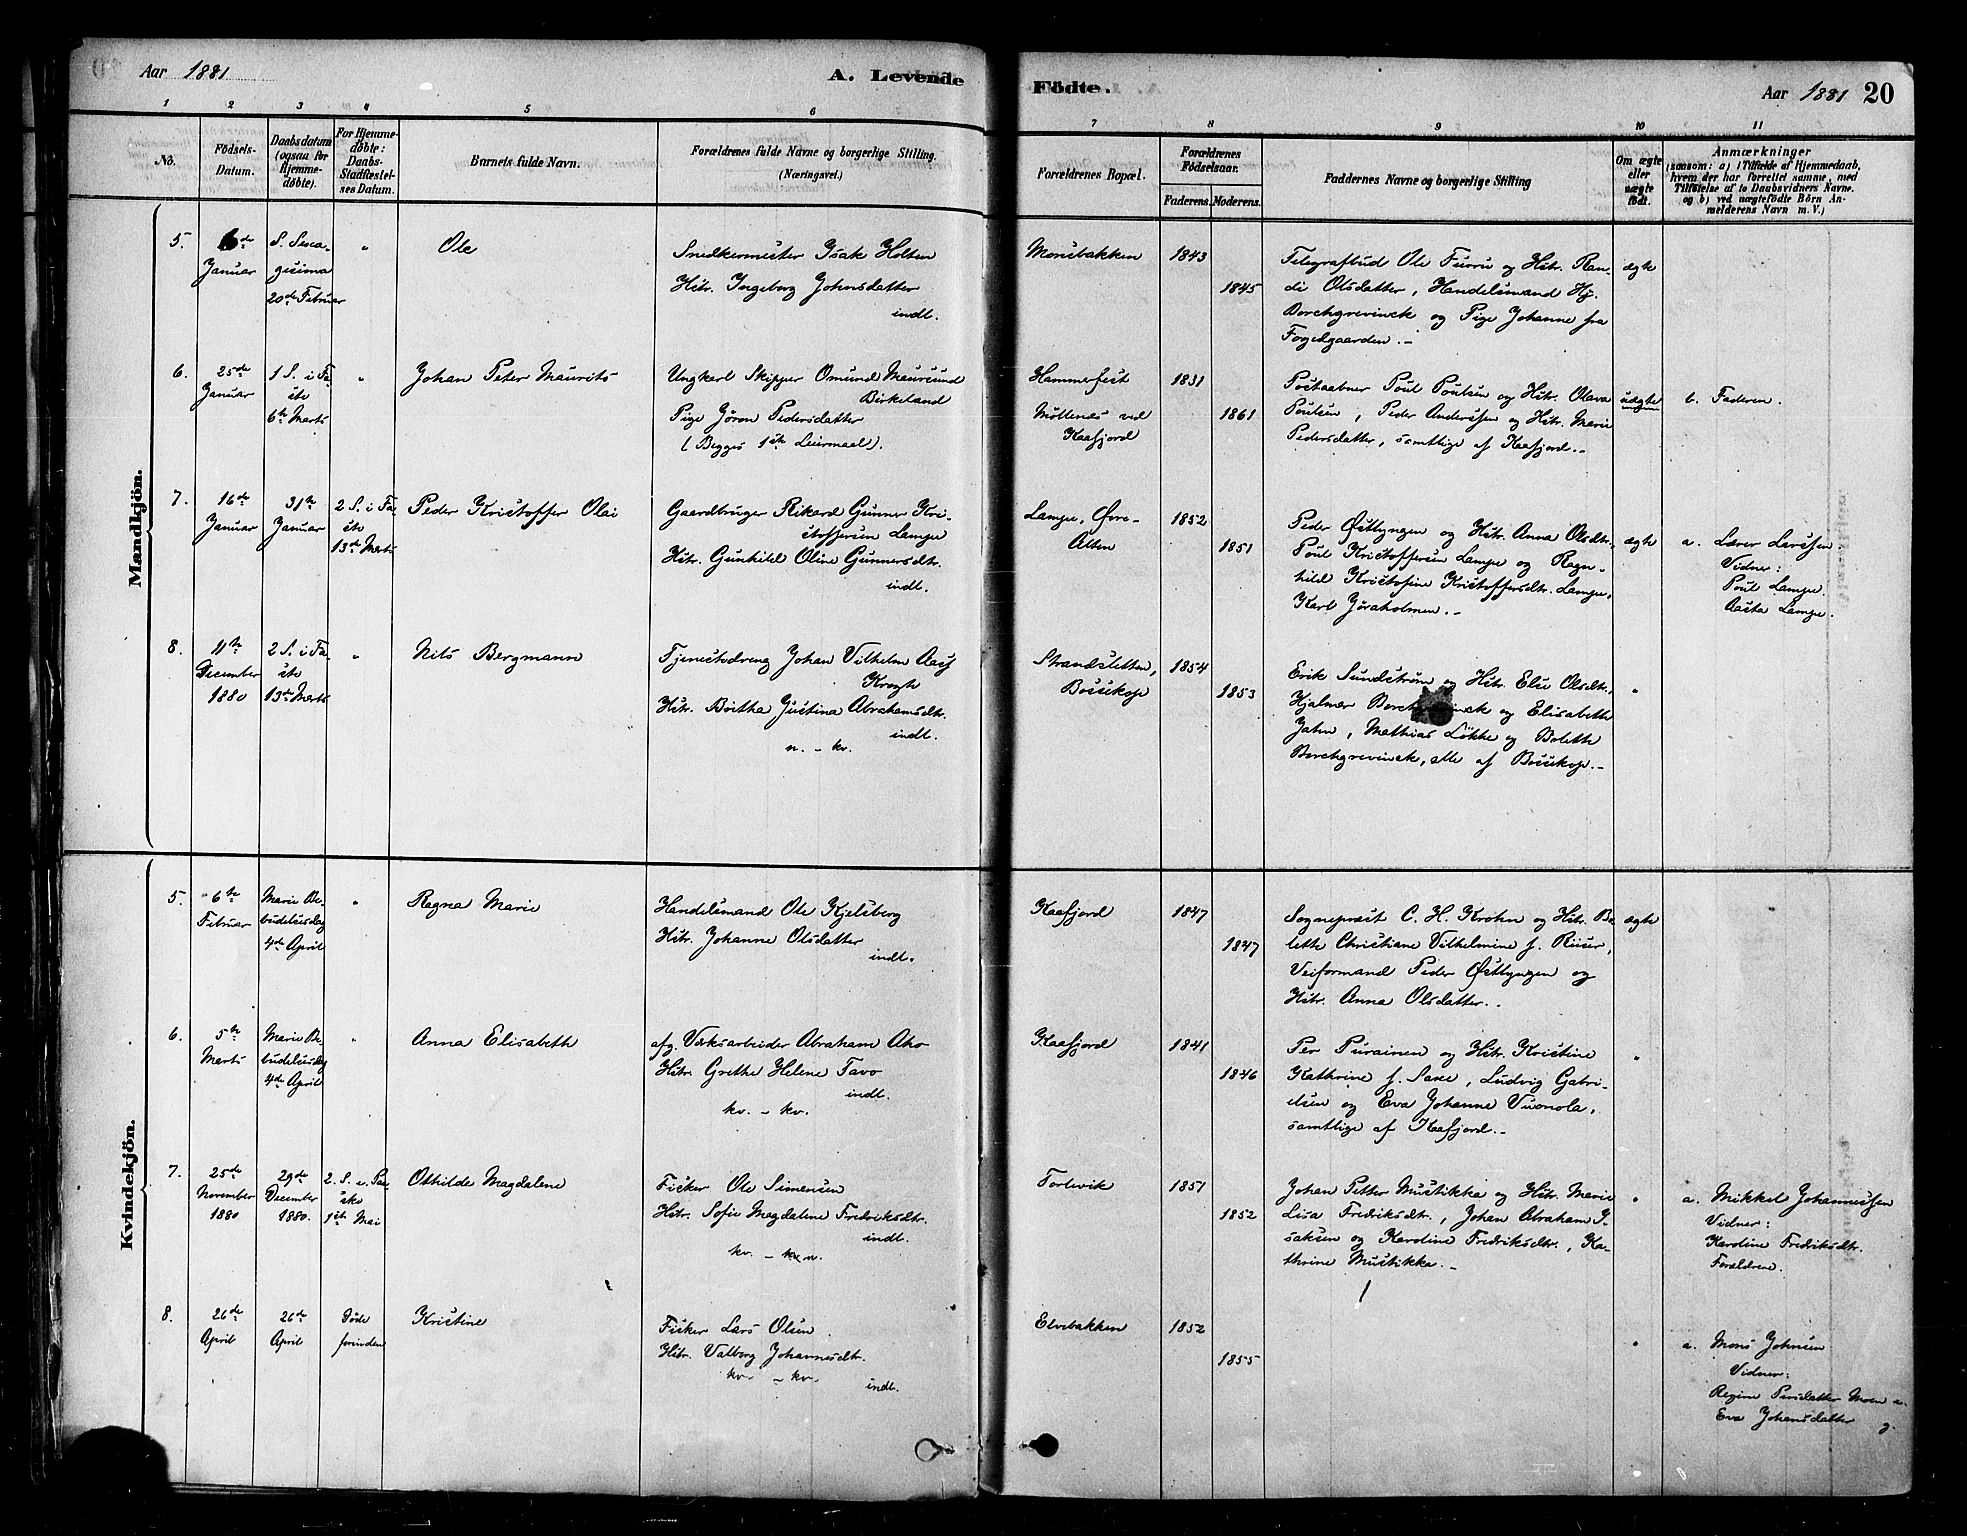 Aar 1881
A. Levende
Födte.
Aar 1881 20
1 2 3 4 5 6 7 8 9 10 11
No.
Födsels-
Datum.
Daabsdatum
(ogsaa for
Hjemme-
döbte).
For Hjemme-
döbte:
Daabs-
Stadfæstel-
ses Datum.
Barnets fulde Navn.
Forældrenes fulde Navne og borgerlige Stilling.
(Næringsvei.)
Forældrenes Bopæl.
Forældrenes
Födselsaar.
Faderens. Moderens.
Faddernes Navne og borgerlige Stilling
Om ægte
eller
uægte
födt.
Anmærkninger
(saasom: a) i Tilfælde af Hjemmedaab,
hvem der har forrettet samme, med
Tilföielse af to Daabsvidners Navne.
og b) ved uægtefödte Börn An-
melderens Navn m. V.)
Mandkjön.
5.
6de
Januar
S. Sexa-
gesima
20de Februar
"
Ole
Snedkermester Isak Holten
Hstr. Ingeborg Johnsdatter
indl.
Monsbakken
1843
1845
Telegrafbud Ole Furru og Hstr. Ran-
di Olsdatter, Handelsmand Hj.
Borchgrevinck og Pige Johanne fra
Fogedgaarden.-
ægte
6.
25de
Januar
1 S. i Fa-
ste
6te Marts
"
Johan Peter Maurits
Ungkarl Skipper Omund Maursund
Birkeland
Pige Jören Pedersdatter
(Begges 1ste Leiermaal).
Hammerfest
Möllenæs ved
Kaafjord
1831
1861
Postaabner Poul Poulsen og Hstr. Olava
Poulsen, Peder Anderssen og Hstr. Marie
Pedersdatter, samtlige af Kaafjord.-
uægte
b. Faderen.
7.
16de
Januar
31te
Januar
2 S. i Fa-
ste
13de Marts
Peder Kristoffer Olai
Gaardbruger Rikard Gunner Kri-
stoffersen Lampe
Hstr. Gunhild Oline Gunnersdtr.
indl.
Lampe, Øvre-
Alten
1852
1851
Peder Østlyngen og Hstr. Anna Olsdtr.
Poul Kristoffersen Lampe og Ragn-
hild Kristofine Kristoffersdtr. Lampe,
Karl Jöraholmen.-
ægte
a. Lærer Larssen
Vidner:
Poul Lampe.
Aasta Lampe.
8.
11te
December
1880
2 S. i Fa-
ste
13de Marts
"
Nils Bergmann
Tjenestedreng Johan Vilhelm Aas
Krogh
Hstr. Britha Justina Abrahamsdtr.
indl.
n. - kv.
Strandsletten,
Bossekop
1854
1853
Erik Sundström og Hstr. Else Olsdtr.,
Hjalmar Borchgrevinck og Elisabeth
Jahn, Mathias Løkke og Bolette
Borchgrevinck, alle af Bossekop.-
"
Kvindekjön.
5.
6te
Februar
Marie Be-
budelsesdag
4de April
"
Ragna Marie
Handelsmand Ole Kjelsberg
Hstr. Johanne Olsdatter
indl.
Kaafjord
1847
1847
Sognepræst C. H. Krohn og Hstr. Bo-
lette Christiane Vilhelmine f. Riiser,
Veiformand Peder Østlyngen og
Hstr. Anna Olsdatter.-
ægte
6.
5te
Marts
Marie Be-
budelsesdag
4de April
"
Anna Elisabeth
afg. Værksarbeider Abraham Aho
Hstr. Grethe Helene Tavo
indl.
kv. - kv.
Kaafjord
1841
1846
Per Purainen og Hstr. Kristine
Kathrine f. Sare, Ludvig Gabri-
elsen og Eva Johanne Vuonola,
samtlige af Kaafjord.-
"
7.
25de
November
1880
29de
December
1880.
2. S. e. Paa-
ske
1ste Mai
Othilde Magdalene
Fisker Ole Simensen
Hstr. Sofie Magdalene Fredriksdtr.
indl.
kv. - n.
Torlevik
1851
1852
Johan Petter Mustikka og Hstr. Marie
Lisa Fredriksdtr., Johan Abraham I-
saksen og Karoline Fredriksdtr., Ka-
thrine Mustikka.-
"
a. Mikkel Johannessen
Vidner:
Karoline Fredriksdtr.
Forældrene.
8.
26de
April
26de
April
Døde
forinden
Kristine
Fisker Lars Olsen.
Hstr. Valborg Johannesdtr.
kv. - kv.
indl.
Elvebakken
1852
1855
"
a. Mons Johnsen
Vidner:
Regine Persdatter Moen
Eva Johansdatter